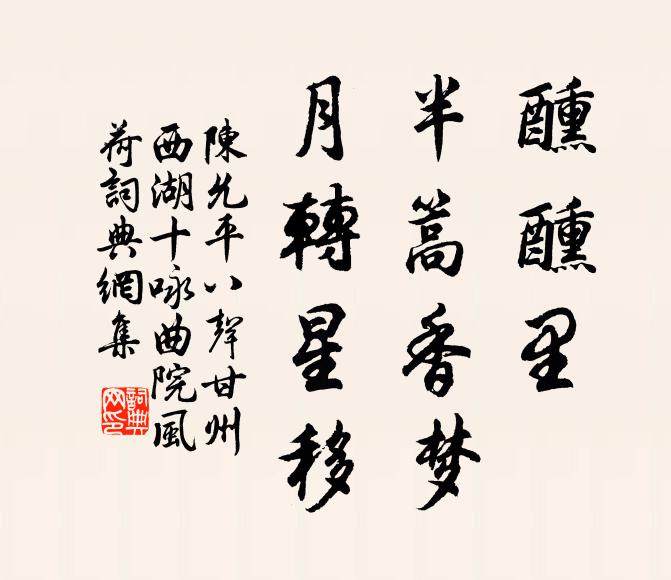 醺醺里
半篙香梦
月轉星移
陳允平八聲甘州
西湖十咏曲院風
荷詞典網集
詞典
网印